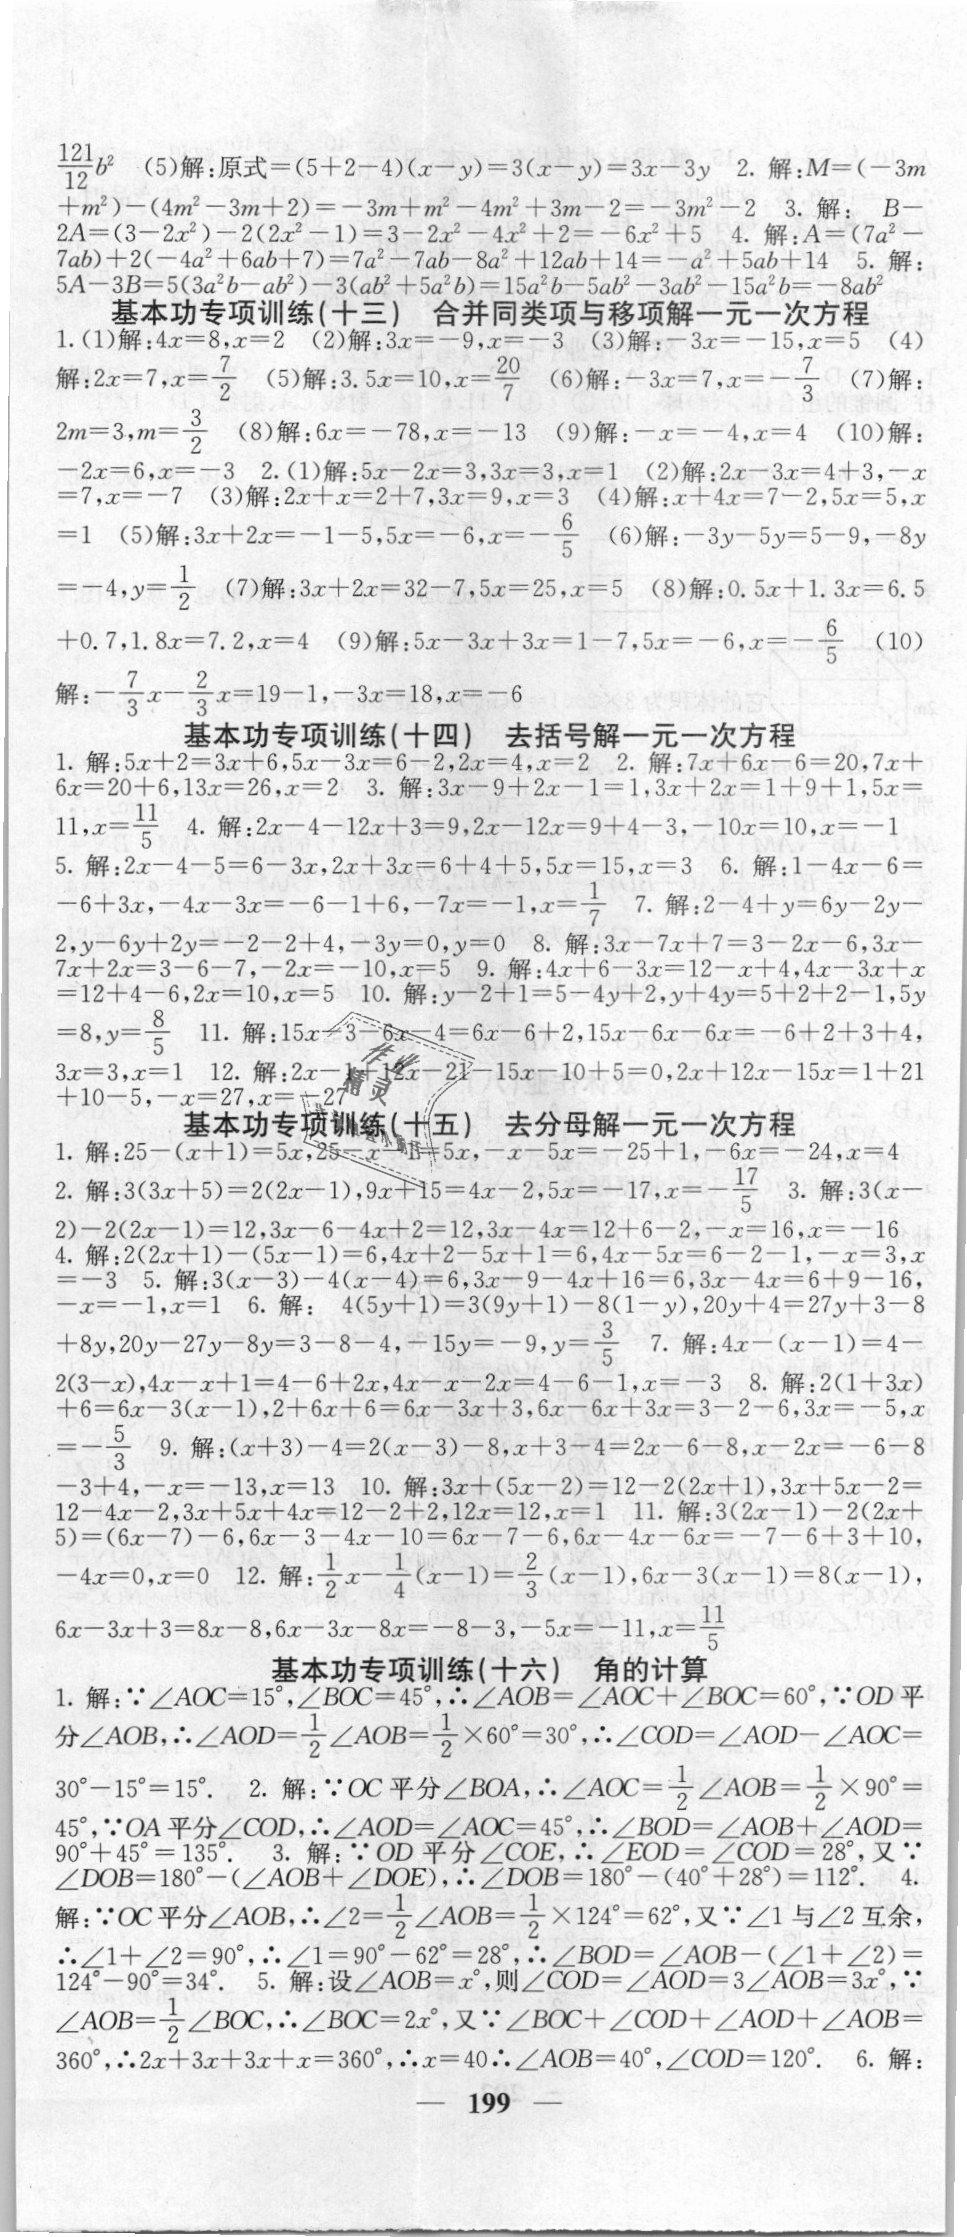 121/12 b² (5)解:原式=(5+2-4)(x-y)=3(x-y)=3x-3y 2. 解:M=(-3m
+m²)-(4m²-3m+2)=-3m+m²-4m²+3m-2=-3m²-2 3. 解: B-
2A=(3-2x²)-2(2x²-1)=3-2x²-4x²+2=-6x²+5 4. 解:A=(7a²-
7ab)+2(-4a²+6ab+7)=7a²-7ab-8a²+12ab+14=-a²+5ab+14 5. 解:
5A-3B=5(3a²b-ab²)-3(ab²+5a²b)=15a²b-5ab²-3ab²-15a²b=-8ab²
基本功专项训练(十三) 合并同类项与移项解一元一次方程
1.(1)解:4x=8,x=2 (2)解:3x=-9,x=-3 (3)解:-3x=-15,x=5 (4)
解:2x=7,x=7/2 (5)解:3.5x=10,x=20/7 (6)解:-3x=7,x=-7/3 (7)解:
2m=3,m=3/2 (8)解:6x=-78,x=-13 (9)解:-x=-4,x=4 (10)解:
-2x=6,x=-3 2.(1)解:5x-2x=3,3x=3,x=1 (2)解:2x-3x=4+3,-x
=7,x=-7 (3)解:2x+x=2+7,3x=9,x=3 (4)解:x+4x=7-2,5x=5,x
=1 (5)解:3x+2x=-1-5,5x=-6,x=-6/5 (6)解:-3y-5y=5-9,-8y
=-4,y=1/2 (7)解:3x+2x=32-7,5x=25,x=5 (8)解:0.5x+1.3x=6.5
+0.7,1.8x=7.2,x=4 (9)解:5x-3x+3x=1-7,5x=-6,x=-6/5 (10)
解:-7/3x-2/3x=19-1,-3x=18,x=-6
基本功专项训练(十四) 去括号解一元一次方程
1. 解:5x+2=3x+6,5x-3x=6-2,2x=4,x=2 2. 解:7x+6x-6=20,7x+
6x=20+6,13x=26,x=2 3. 解:3x-9+2x-1=1,3x+2x=1+9+1,5x=
11,x=11/5 4. 解:2x-4-12x+3=9,2x-12x=9+4-3,-10x=10,x=-1
5. 解:2x-4-5=6-3x,2x+3x=6+4+5,5x=15,x=3 6. 解:1-4x-6=
-6+3x,-4x-3x=-6-1+6,-7x=-1,x=1/7 7. 解:2-4+y=6y-2y-
2,y-6y+2y=-2-2+4,-3y=0,y=0 8. 解:3x-7x+7=3-2x-6,3x-
7x+2x=3-6-7,-2x=-10,x=5 9. 解:4x+6-3x=12-x+4,4x-3x+x
=12+4-6,2x=10,x=5 10. 解:y-2+1=5-4y+2,y+4y=5+2+2-1,5y
=8,y=8/5 11. 解:15x-3-6x-4=6x-6+2,15x-6x-6x=-6+2+3+4,
3x=3,x=1 12. 解:2x-1+12x-21-15x-10+5=0,2x+12x-15x=1+21
+10-5,-x=27,x=-27
作业
精灵
基本功专项训练(十五) 去分母解一元一次方程
1. 解:25-(x+1)=5x,25-x-1=5x,-x-5x=-25+1,-6x=-24,x=4
2. 解:3(3x+5)=2(2x-1),9x+15=4x-2,5x=-17,x=-17/5 3. 解:3(x-
2)-2(2x-1)=12,3x-6-4x+2=12,3x-4x=12+6-2,-x=16,x=-16
4. 解:2(2x+1)-(5x-1)=6,4x+2-5x+1=6,4x-5x=6-2-1,-x=3,x
=-3 5. 解:3(x-3)-4(x-4)=6,3x-9-4x+16=6,3x-4x=6+9-16,
-x=-1,x=1 6. 解: 4(5y+1)=3(9y+1)-8(1-y),20y+4=27y+3-8
+8y,20y-27y-8y=3-8-4,-15y=-9,y=3/5 7. 解:4x-(x-1)=4-
2(3-x),4x-x+1=4-6+2x,4x-x-2x=4-6-1,x=-3 8. 解:2(1+3x)
+6=6x-3(x-1),2+6x+6=6x-3x+3,6x-6x+3x=3-2-6,3x=-5,x
=-5/3 9. 解:(x+3)-4=2(x-3)-8,x+3-4=2x-6-8,x-2x=-6-8
-3+4,-x=-13,x=13 10. 解:3x+(5x-2)=12-2(2x+1),3x+5x-2=
12-4x-2,3x+5x+4x=12-2+2,12x=12,x=1 11. 解:3(2x-1)-2(2x+
5)=(6x-7)-6,6x-3-4x-10=6x-7-6,6x-4x-6x=-7-6+3+10,
-4x=0,x=0 12. 解:1/2x-1/4(x-1)=2/3(x-1),6x-3(x-1)=8(x-1),
6x-3x+3=8x-8,6x-3x-8x=-8-3,-5x=-11,x=11/5
基本功专项训练(十六) 角的计算
1. 解:∵∠AOC=15°,∠BOC=45°,∴∠AOB=∠AOC+∠BOC=60°,∵OD平
分∠AOB,∴∠AOD=1/2∠AOB=1/2×60°=30°,∴∠COD=∠AOD-∠AOC=
30°-15°=15°. 2. 解:∵OC平分∠BOA,∴∠AOC=1/2∠AOB=1/2×90°=
45°,∵OA平分∠COD,∴∠AOD=∠AOC=45°,∴∠BOD=∠AOB+∠AOD=
90°+45°=135°. 3. 解:∵OD平分∠COE,∴∠EOD=∠COD=28°,又∵
∠DOB=180°-(∠AOB+∠DOE),∴∠DOB=180°-(40°+28°)=112°. 4.
解:∵OC平分∠AOB,∴∠2=1/2∠AOB=1/2×124°=62°,又∵∠1与∠2互余,
∴∠1+∠2=90°,∴∠1=90°-62°=28°,∴∠BOD=∠AOB-(∠1+∠2)=
124°-90°=34°. 5. 解:设∠AOB=x°,则∠COD=∠AOD=3∠AOB=3x°,∵
∠AOB=1/2∠BOC,∴∠BOC=2x°,又∵∠BOC+∠COD+∠AOD+∠AOB=
360°,∴2x+3x+3x+x=360°,∴x=40∴∠AOB=40°,∠COD=120°. 6. 解:
— 199 —